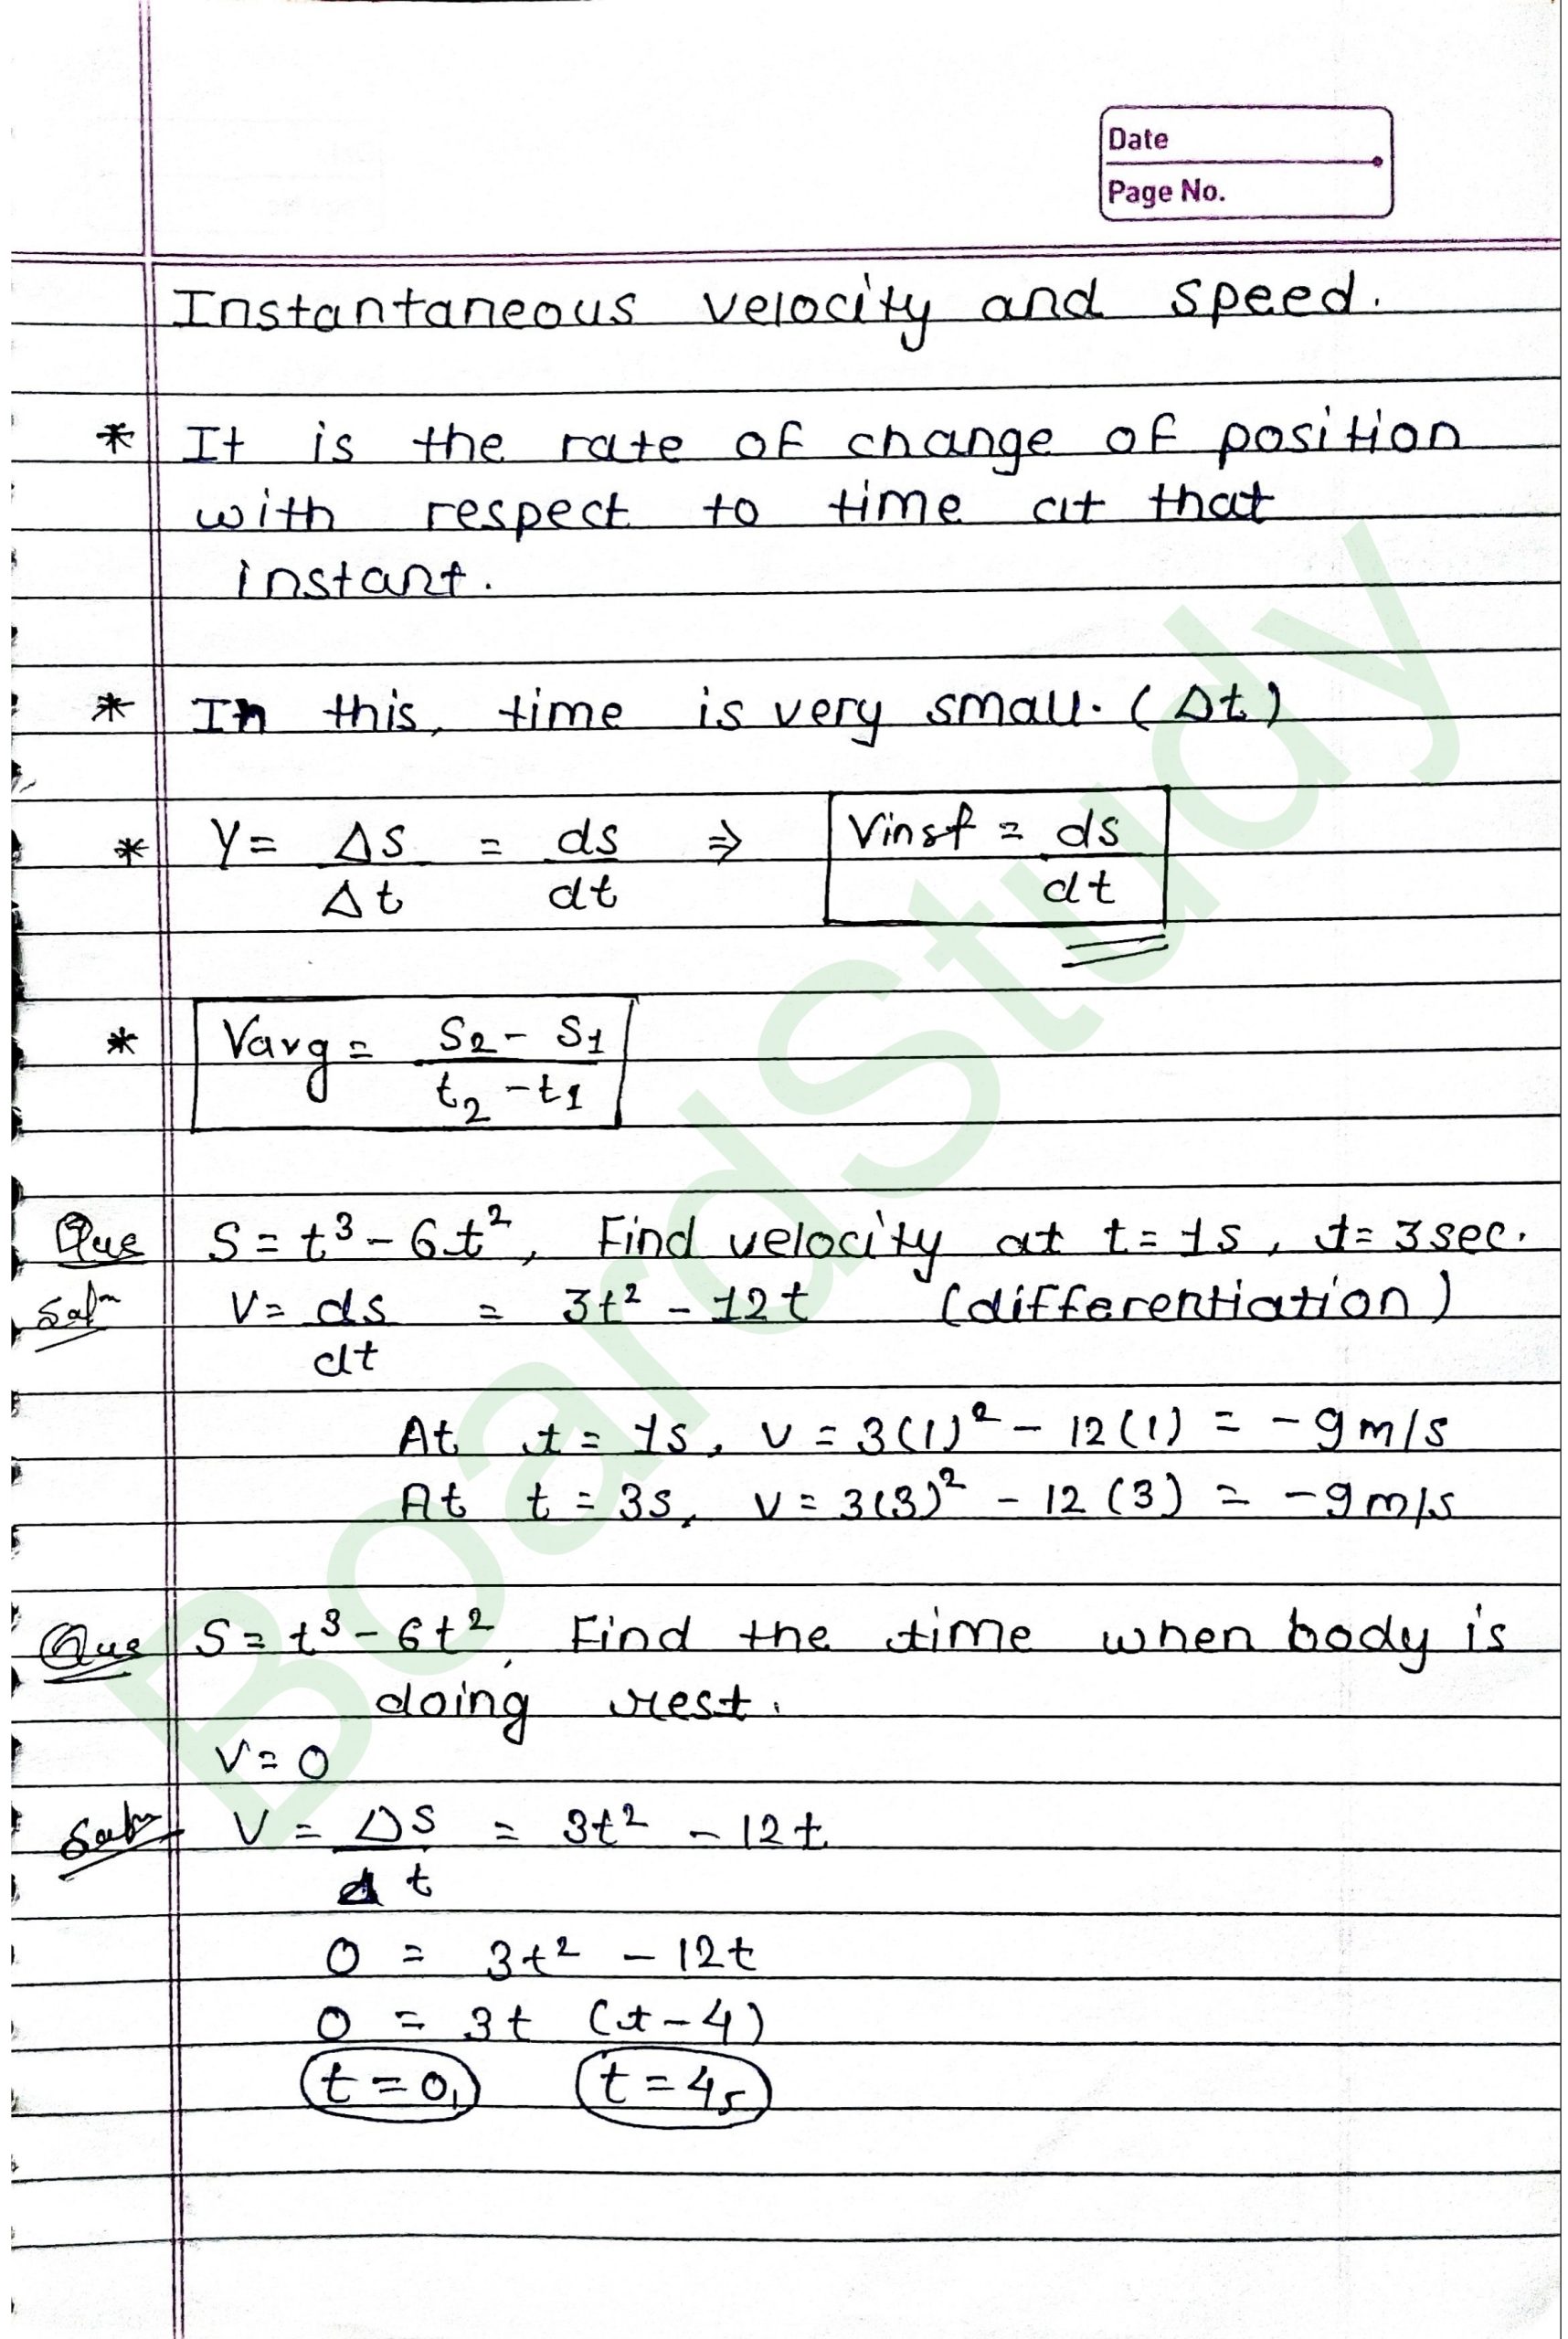 Date
Page No.
Instantaneous velocity and speed.
* It is the rate of change of position
with respect to time at that
instant.
* In this, time is very small. (Δt)
* V = Δs/Δt = ds/dt ⇒ Vinst = ds/dt
* Vavg = S2 - S1 / t2 - t1
Que S = t³ - 6t², Find velocity at t = 1s, t = 3 sec.
Soln V = ds/dt = 3t² - 12t (differentiation)
At t = 1s, v = 3(1)² - 12(1) = -9m/s
At t = 3s, v = 3(3)² - 12(3) = -9m/s
Que S = t³ - 6t², Find the time when body is
doing rest.
V = 0
Soln V = Δs/dt = 3t² - 12t
0 = 3t² - 12t
0 = 3t (t - 4)
t = 0, t = 4s
BoardStudy